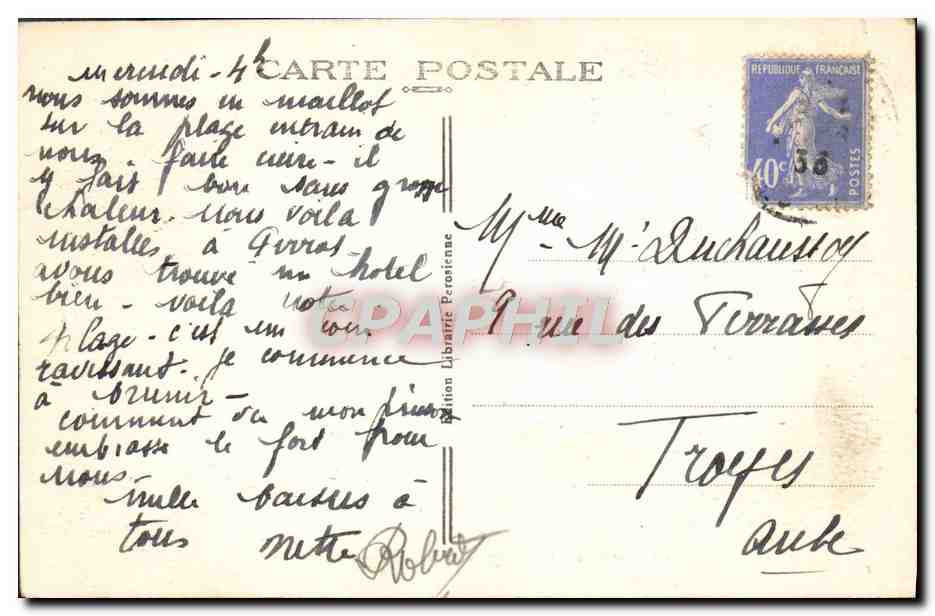 CARTE POSTALE
mercredi - 4h
nous sommes en maillot
sur la plage en train de
nous faire cuire - il
y fait bon sans grosse
chaleur. nous voila
installés à
avons trouvé un hotel
bien - voila notre
plage - c'est un coin
ravissant. je commence
à brunir -
comment va mon
embrasse le fort pour
nous -
mille baisers à
tous
Robert
Edition Librairie Perosienne
REPUBLIQUE FRANÇAISE
40c
POSTES
36
CPAPHIL
Mme Mce Duchaussoy
9 rue des Terrasses
Troyes
Aube